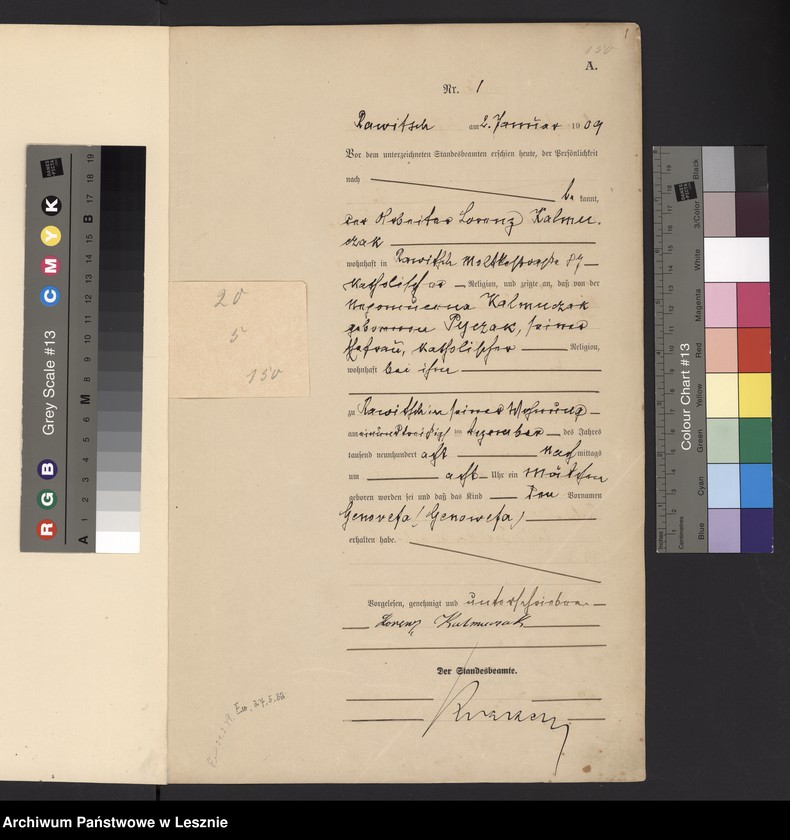 150
1
A.
Nr. 1
Rawitsch am 2. Januar 1909
Vor dem unterzeichneten Standesbeamten erschien heute, der Persönlichkeit
nach
be kannt,
der Arbeiter Lorenz Kalmu-
czak
wohnhaft in Rawitsch Moltkestraße
katholischer Religion, und zeigte an, daß von der
Nepomucena Kalmuczak
geborenen Pyczak, seiner
Ehefrau, katholischer Religion,
wohnhaft bei ihm
zu Rawitsch in seiner Wohnung
am einunddreißigsten Dezember des Jahres
tausend neunhundert acht Nachmittags
um acht Uhr ein Mädchen
geboren worden sei und daß das Kind den Vornamen
Genovefa (Genowefa)
erhalten habe.
Vorgelesen, genehmigt und unterschrieben
Lorenz Kalmuczak
Der Standesbeamte.
20
5
150
Grey Scale #13
R G B C M Y K
A 1 2 3 4 5 6 M 8 9 10 11 12 13 14 15 B 17 18 19
Colour Chart #13
Blue Cyan Green Yellow Red Magenta White 3/Color Black
Centimetres
Inches
Archiwum Państwowe w Lesznie